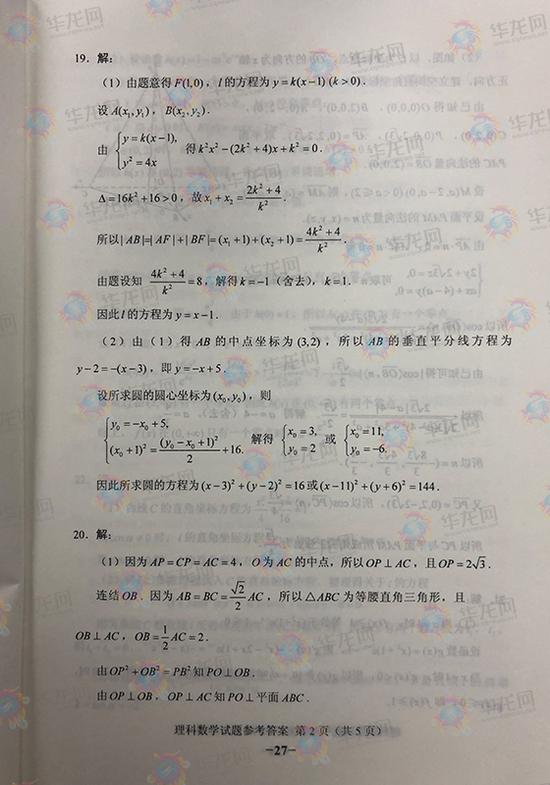 19．解：
（1）由题意得 F(1,0)，l 的方程为 y = k(x−1) (k > 0) .
设 A(x₁, y₁)，B(x₂, y₂) .
由 { y = k(x−1), y² = 4x 得 k²x² − (2k² + 4)x + k² = 0 .
Δ = 16k² + 16 > 0，故 x₁ + x₂ = (2k² + 4)/k² .
所以 | AB |=| AF | + | BF |= (x₁ + 1) + (x₂ + 1) = (4k² + 4)/k² .
由题设知 (4k² + 4)/k² = 8，解得 k = −1（舍去），k = 1.
因此 l 的方程为 y = x − 1 .
（2）由（1）得 AB 的中点坐标为 (3,2)，所以 AB 的垂直平分线方程为
y − 2 = −(x − 3)，即 y = −x + 5 .
设所求圆的圆心坐标为 (x₀, y₀)，则
{ y₀ = −x₀ + 5, (x₀ + 1)² = (y₀ − x₀ + 1)²/2 + 16. 解得 { x₀ = 3, y₀ = 2 或 { x₀ = 11, y₀ = −6.
因此所求圆的方程为 (x − 3)² + (y − 2)² = 16 或 (x − 11)² + (y + 6)² = 144 .
20．解：
（1）因为 AP = CP = AC = 4，O 为 AC 的中点，所以 OP ⊥ AC，且 OP = 2√3 .
连结 OB．因为 AB = BC = √2/2 AC，所以 △ABC 为等腰直角三角形，且
OB ⊥ AC，OB = 1/2 AC = 2 .
由 OP² + OB² = PB² 知 PO ⊥ OB .
由 OP ⊥ OB，OP ⊥ AC 知 PO ⊥ 平面 ABC .
理科数学试题参考答案 第 2 页（共 5 页）
−27−
华龙网